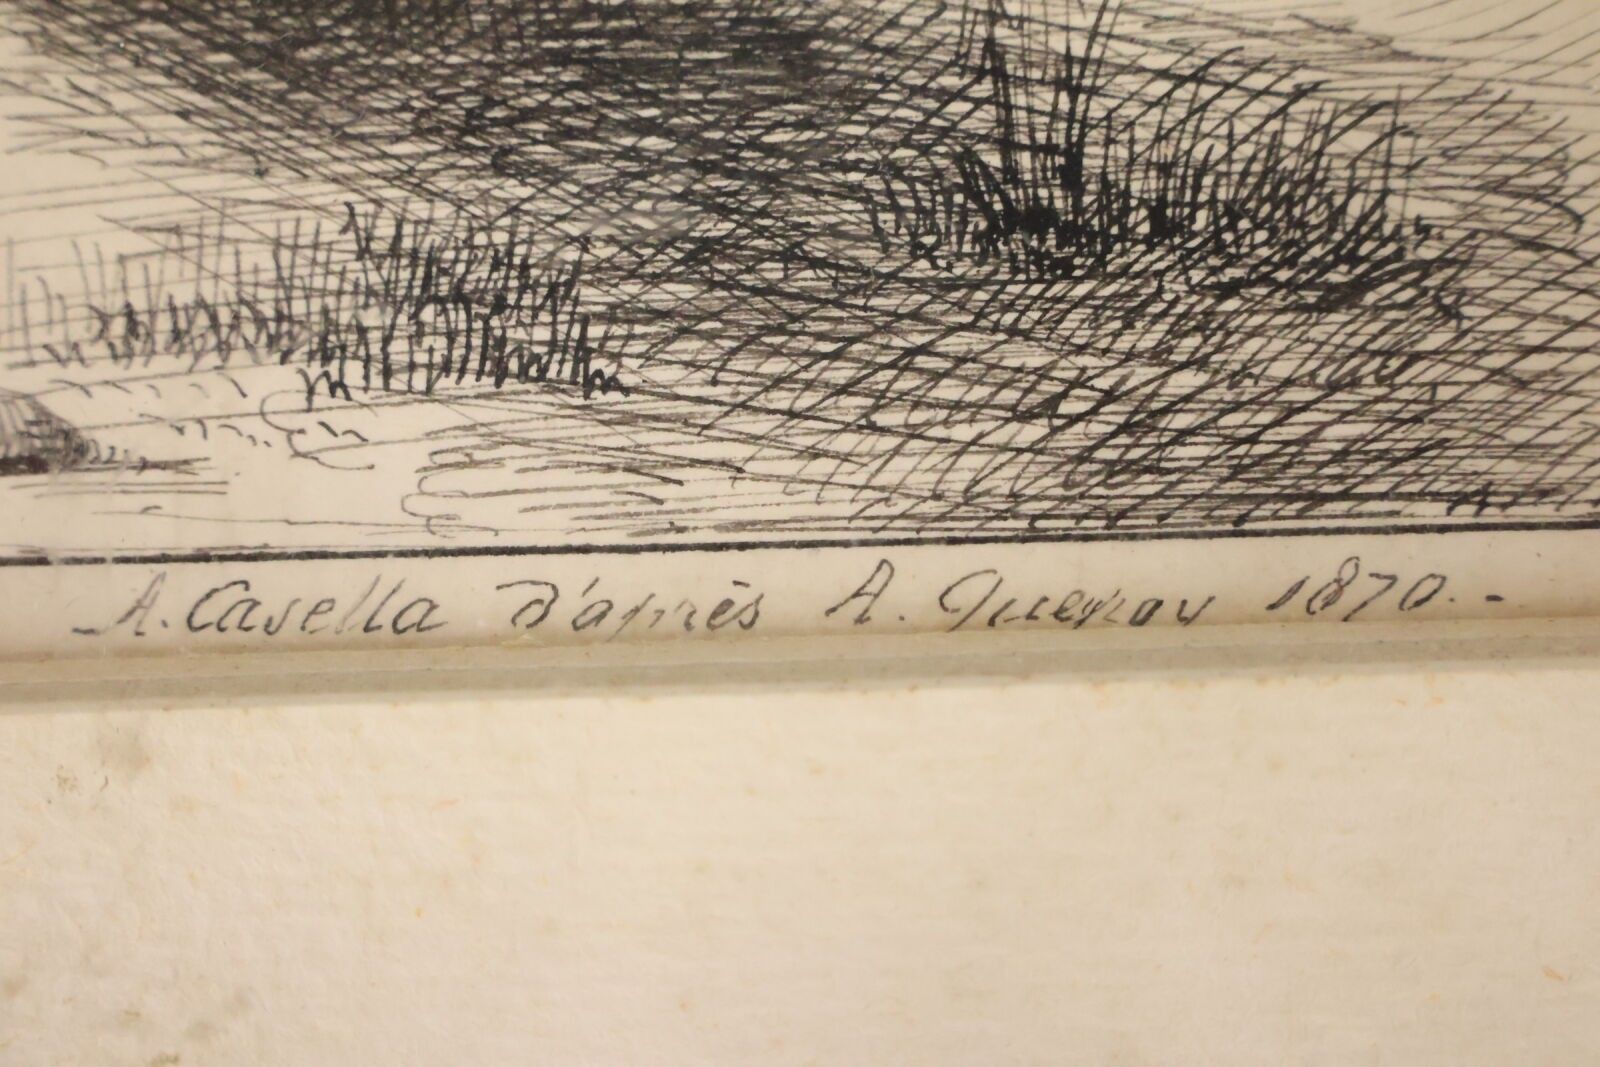 A. Casella d'après A. Queyroy 1870.-